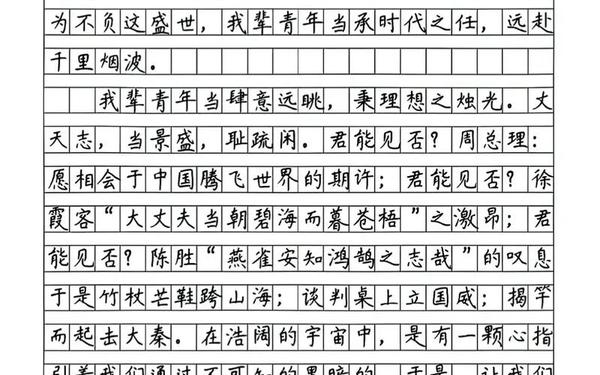 为不负这盛世，我辈青年当承时代之任，远赴
千里烟波。
我辈青年当肆意远眺，乘理想之烛光。丈
天志，当景盛，耻疏闲。君能见否？周总理：
愿相会于中国腾飞世界的期许；君能见否？徐
霞客“大丈夫当朝碧海而暮苍梧”之激昂；君
能见否？陈胜“燕雀安知鸿鹄之志哉”的叹息
于是竹杖芒鞋跨山海；谈判桌上立国威；揭竿
而起去大秦。在浩阔的宇宙中，是有一颗心指
引着我们通过不可知的黑暗的，于是，让我们